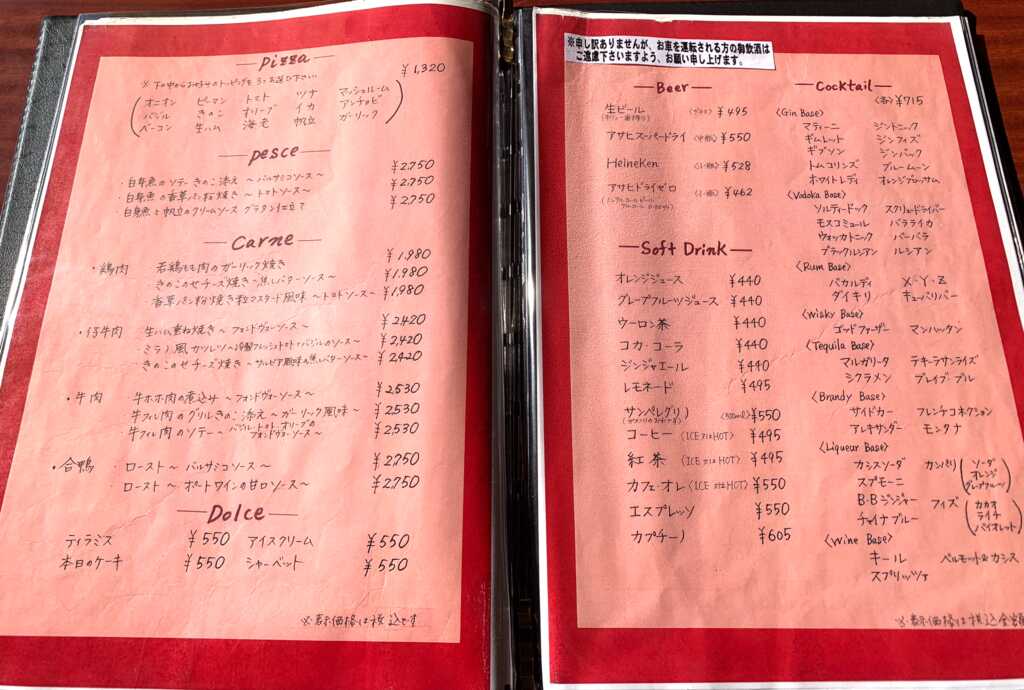 Pizza
¥1,320
※下の中からお好みのトッピングを3つお選び下さい
オニオン ピーマン トマト ツナ マッシュルーム
バジル きのこ オリーブ イカ アンチョビ
ベーコン 生ハム 海老 帆立 ガーリック
pesce
・白身魚のソテー きのこ添え 〜バルサミコソース〜 ¥2,750
・白身魚の香草パン粉焼き 〜トマトソース〜 ¥2,750
・白身魚と帆立のクリームソース グラタン仕立て ¥2,750
Carne
・鶏肉 若鶏もも肉のガーリック焼き ¥1,980
きのこのせチーズ焼き〜焦しバターソース〜 ¥1,980
・香草パン粉焼き粒マスタード風味 〜トマトソース〜 ¥1,980
・仔牛肉 生ハム重ね焼き 〜フォンドヴォーソース〜 ¥2,420
・ミラノ風カツレツ〜冷製フレッシュトマトバジルのソース〜 ¥2,420
きのこのせチーズ焼き 〜サルビア風味の焦しバターソース〜 ¥2,420
・牛肉 牛ホホ肉の煮込み 〜フォンドヴォーソース〜 ¥2,530
牛フィレ肉のグリルきのこ添え 〜ガーリック風味〜 ¥2,530
牛フィレ肉のソテー 〜バジル・トマト・オリーブのフォンドヴォーソース〜 ¥2,530
・合鴨 ・ロースト〜 バルサミコソース〜 ¥2,750
・ロースト〜 ポートワインの甘口ソース〜 ¥2,750
Dolce
ティラミス ¥550 アイスクリーム ¥550
本日のケーキ ¥550 シャーベット ¥550
※表示価格は税込です
※申し訳ありませんが、お車を運転される方の御飲酒は
ご遠慮下さいますよう、お願い申し上げます。
Beer
生ビール ¥495
アサヒスーパードライ 〈中瓶〉 ¥550
Heineken 〈小瓶〉 ¥528
アサヒドライゼロ 〈小瓶〉 ¥462
Soft Drink
オレンジジュース ¥440
グレープフルーツジュース ¥440
ウーロン茶 ¥440
コカ・コーラ ¥440
ジンジャエール ¥440
レモネード ¥495
サンペレグリノ 〈500ml〉 ¥550
コーヒー 〈ICE又はHOT〉 ¥495
紅茶 〈ICE又はHOT〉 ¥495
カフェ・オレ 〈ICE又はHOT〉 ¥550
エスプレッソ ¥550
カプチーノ ¥605
Cocktail
〈各〉¥715
〈Gin Base〉
マティーニ ジントニック
ギムレット ジンフィズ
ギブソン ジンバック
トムコリンズ ブルームーン
ホワイトレディ オレンジブロッサム
〈Vodoka Base〉
ソルティードック スクリュードライバー
モスコミュール バラライカ
ウォッカトニック バーバラ
ブラックルシアン ルシアン
〈Rum Base〉
バカルディ X・Y・Z
ダイキリ キューバリバー
〈Wisky Base〉
ゴッドファーザー マンハッタン
〈Tequila Base〉
マルガリータ テキーラサンライズ
シクラメン ブレイブ・ブル
〈Brandy Base〉
サイドカー フレンチコネクション
アレキサンダー モンタナ
〈Liqueur Base〉
カシスソーダ カンパリ(ソーダ オレンジ グレープフルーツ)
スプモーニ
B・Bジンジャー フィズ(カカオ ライチ バイオレット)
チャイナブルー
〈Wine Base〉
キール ベルモット&カシス
スプリッツァ
※表示価格は税込金額